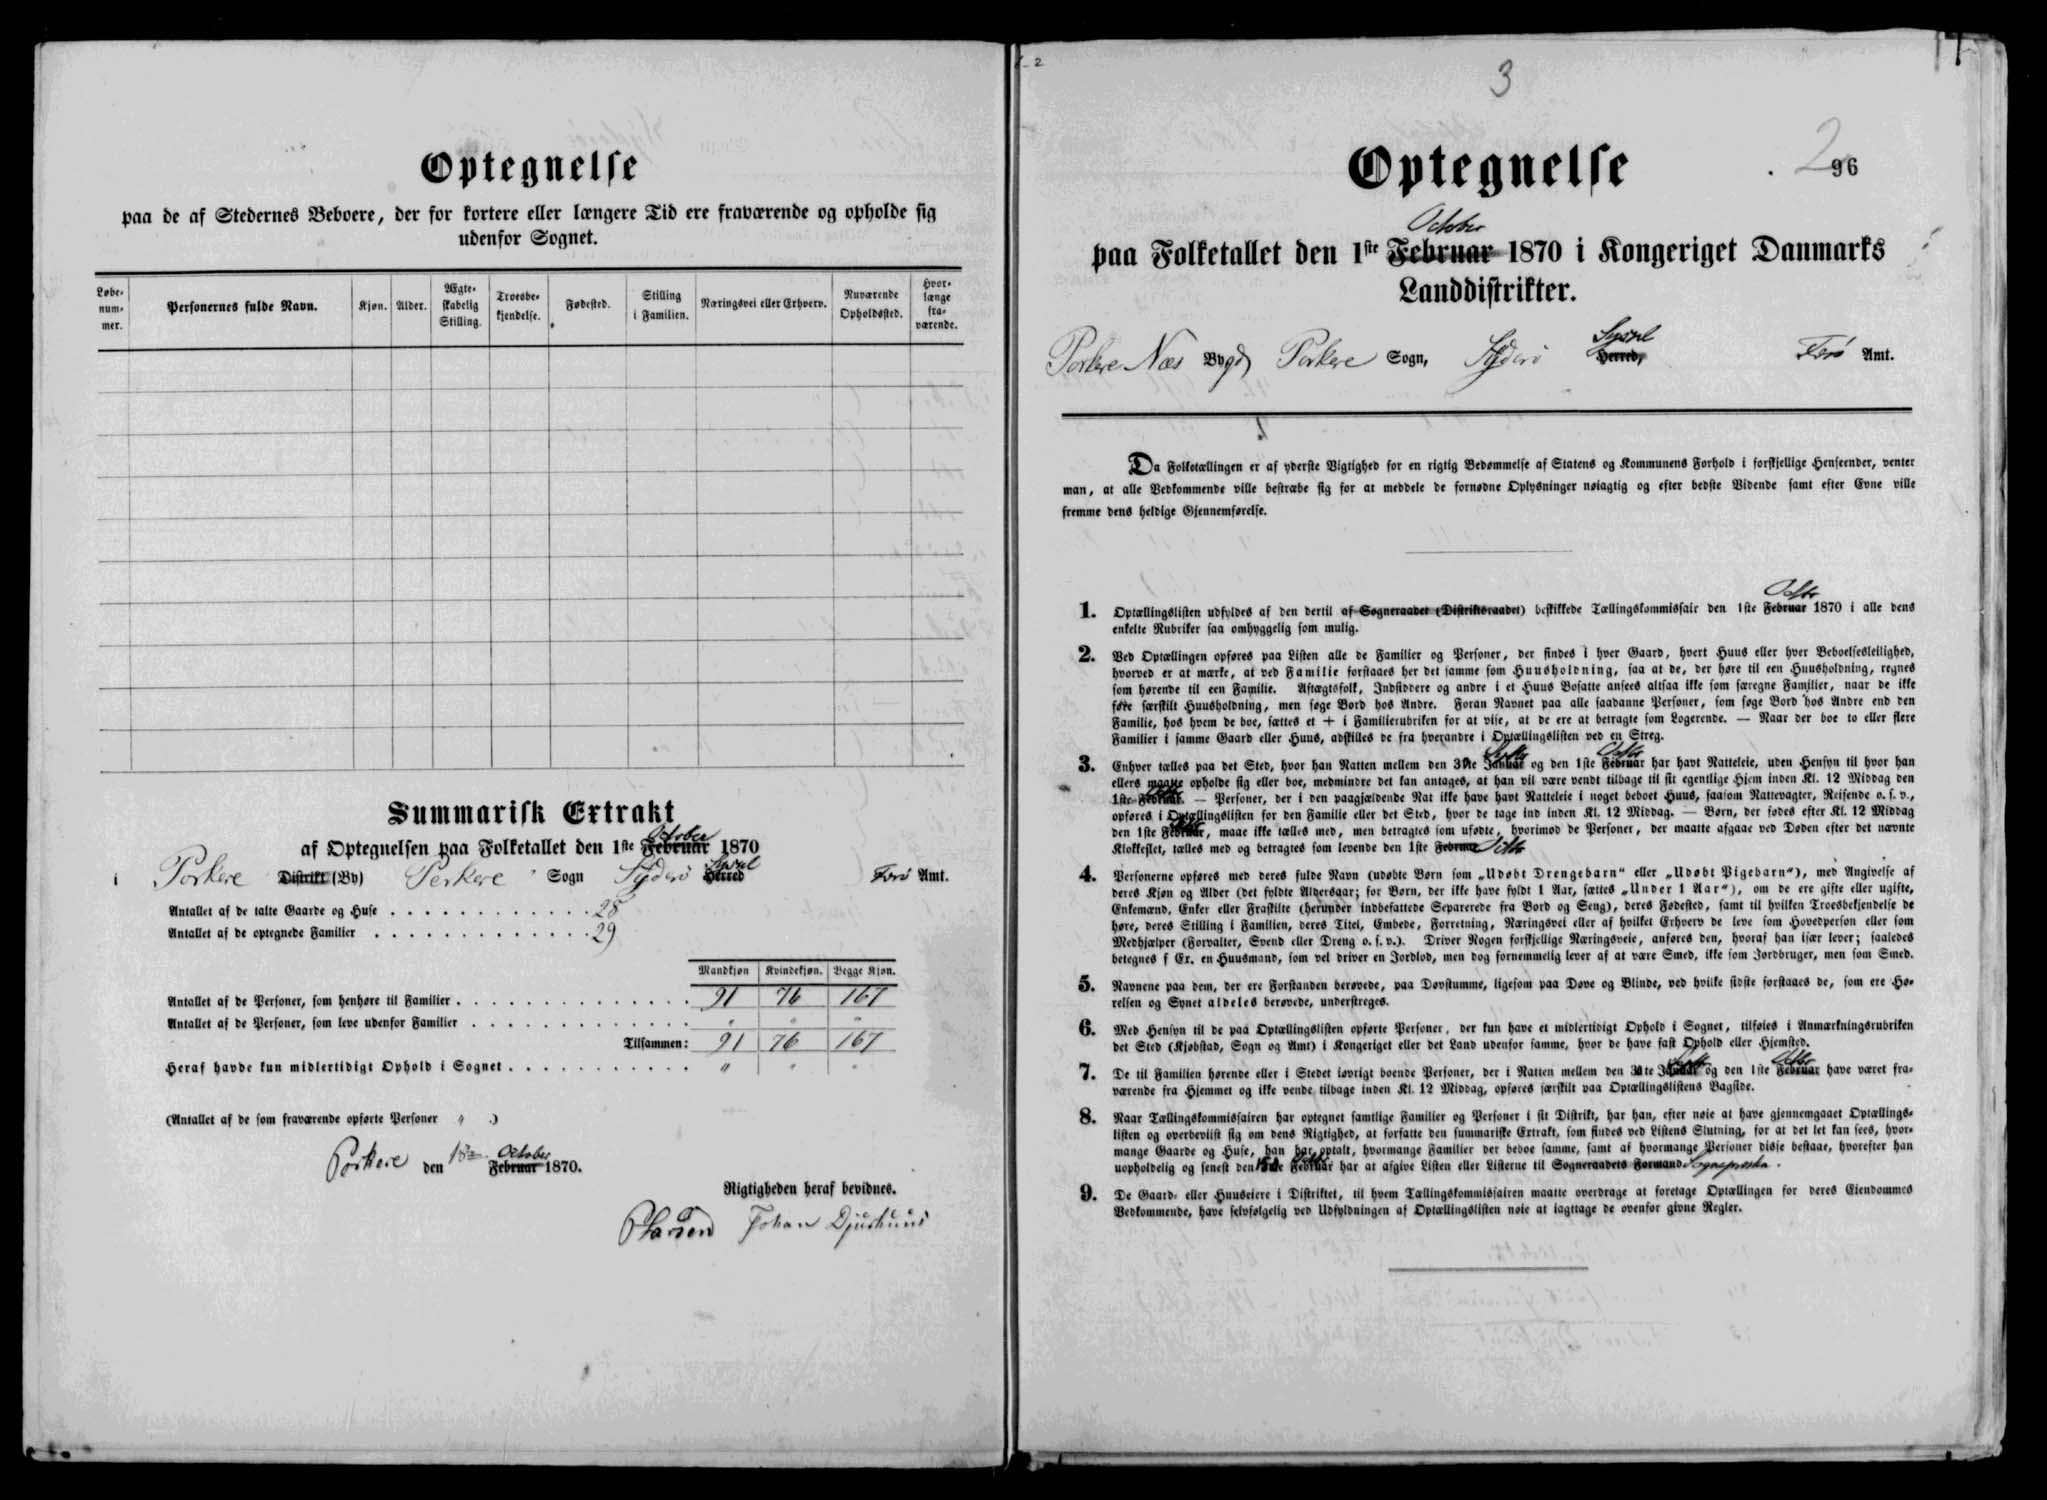 Optegnelse
paa de af Stedernes Beboere, der for kortere eller længere Tid ere fraværende og opholde sig
udenfor Sognet.
Løbe-
num-
mer.
Personernes fulde Navn.
Kjøn.
Alder.
Ægte-
skabelig
Stilling.
Troesbe-
kjendelse.
Fødested.
Stilling
i Familien.
Næringsvei eller Erhverv.
Nuværende
Opholdssted.
Hvor-
længe
fra-
værende.
Summarisk Extrakt
October
af Optegnelsen paa Folketallet den 1ste Februar 1870
Syssel
i Porkere Distrikt (By) Porkere Sogn Syderø Herred Færø Amt.
Antallet af de talte Gaarde og Huse . . . . . . . . . . . . . 28
Antallet af de optegnede Familier . . . . . . . . . . . . . . 29
Mandkjøn Kvindekjøn. Begge Kjøn.
Antallet af de Personer, som henhøre til Familier . . . . 91 76 167
Antallet af de Personer, som leve udenfor Familier . . . . " " "
Tilsammen: 91 76 167
Heraf havde kun midlertidigt Ophold i Sognet . . . . " " "
(Antallet af de som fraværende opførte Personer " .)
October
Porkere den Februar 1870.
Rigtigheden heraf bevidnes.
Johan Djurhuus
3
2
96
Optegnelse
October
paa Folketallet den 1ste Februar 1870 i Kongeriget Danmarks
Landdistrikter.
Syssel
Porkere Næs Bygd Porkere Sogn, Syderø Herred, Færø Amt.
Da Folketællingen er af yderste Vigtighed for en rigtig Bedømmelse af Statens og Kommunens Forhold i forskjellige Henseender, venter
man, at alle Vedkommende ville bestræbe sig for at meddele de fornødne Oplysninger nøiagtig og efter bedste Vidende samt efter Evne ville
fremme dens heldige Gjennemførelse.
Octbr
1. Optællingslisten udfyldes af den dertil af Sogneraadet (Distriktsraadet) beskikkede Tællingskommissair den 1ste Februar 1870 i alle dens
enkelte Rubriker saa omhyggelig som mulig.
2. Ved Optællingen opføres paa Listen alle de Familier og Personer, der findes i hver Gaard, hvert Huus eller hver Beboelsesleilighed,
hvorved er at mærke, at ved Familie forstaaes her det samme som Huusholdning, saa at de, der høre til een Huusholdning, regnes
som hørende til een Familie. Aftægtsfolk, Indsiddere og andre i et Huus Bosatte ansees altsaa ikke som særegne Familier, naar de ikke
føre særskilt Huusholdning, men søge Bord hos Andre. Foran Navnet paa alle saadanne Personer, som søge Bord hos Andre end den
Familie, hos hvem de boe, sættes et + i Familierubriken for at vise, at de ere at betragte som Logerende. — Naar der boe to eller flere
Familier i samme Gaard eller Huus, adskilles de fra hverandre i Optællingslisten ved en Streg.
Septbr Octbr
3. Enhver tælles paa det Sted, hvor han Natten mellem den 30te Januar og den 1ste Februar har havt Natteleie, uden Hensyn til hvor han
ellers maatte opholde sig eller boe, medmindre det kan antages, at han vil være vendt tilbage til sit egentlige Hjem inden Kl. 12 Middag den
1ste Februar. — Personer, der i den paagjældende Nat ikke have havt Natteleie i noget beboet Huus, saasom Nattevagter, Reisende o. s. v.,
opføres i Optællingslisten for den Familie eller det Sted, hvor de tage ind inden Kl. 12 Middag. — Børn, der fødes efter Kl. 12 Middag
den 1ste Februar, maae ikke tælles med, men betragtes som ufødte, hvorimod de Personer, der maatte afgaae ved Døden efter det nævnte
Klokkeslet, tælles med og betragtes som levende den 1ste Februar Octbr
4. Personerne opføres med deres fulde Navn (udøbte Børn som „Udøbt Drengebarn“ eller „Udøbt Pigebarn“), med Angivelse af
deres Kjøn og Alder (det fyldte Aldersaar; for Børn, der ikke have fyldt 1 Aar, sættes „Under 1 Aar“), om de ere gifte eller ugifte,
Enkemænd, Enker eller Fraskilte (herunder indbefattede Separerede fra Bord og Seng), deres Fødested, samt til hvilken Troesbekjendelse de
høre, deres Stilling i Familien, deres Titel, Embede, Forretning, Næringsvei eller af hvilket Erhverv de leve som Hovedperson eller som
Medhjælper (Forvalter, Svend eller Dreng o. s. v.). Driver Nogen forskjellige Næringsveie, anføres den, hvoraf han især lever; saaledes
betegnes f Ex. en Huusmand, som vel driver en Jordlod, men dog fornemmelig lever af at være Smed, ikke som Jordbruger, men som Smed.
5. Navnene paa dem, der ere Forstanden berøvede, paa Døvstumme, ligesom paa Døve og Blinde, ved hvilke sidste forstaaes de, som ere Hø-
relsen og Synet aldeles berøvede, understreges.
6. Med Hensyn til de paa Optællingslisten opførte Personer, der kun have et midlertidigt Ophold i Sognet, tilføies i Anmærkningsrubriken
det Sted (Kjøbstad, Sogn og Amt) i Kongeriget eller det Land udenfor samme, hvor de have fast Ophold eller Hjemsted.
Septbr Octbr
7. De til Familien hørende eller i Stedet iøvrigt boende Personer, der i Natten mellem den 30te Januar og den 1ste Februar have været fra-
værende fra Hjemmet og ikke vende tilbage inden Kl. 12 Middag, opføres særskilt paa Optællingslistens Bagside.
8. Naar Tællingskommissairen har optegnet samtlige Familier og Personer i sit Distrikt, har han, efter nøie at have gjennemgaaet Optællings-
listen og overbeviist sig om dens Rigtighed, at forfatte den summariske Extrakt, som findes ved Listens Slutning, for at det let kan sees, hvor-
mange Gaarde og Huse, han har optalt, hvormange Familier der beboe samme, samt af hvormange Personer disse bestaae, hvorefter han
uopholdelig og senest den 15de Februar har at afgive Listen eller Listerne til Sogneraadets Formand Sognepræsten.
9. De Gaard- eller Huuseiere i Distriktet, til hvem Tællingskommissairen maatte overdrage at foretage Optællingen for deres Eiendommes
Vedkommende, have selvfølgelig ved Udfyldningen af Optællingslisten nøie at iagttage de ovenfor givne Regler.